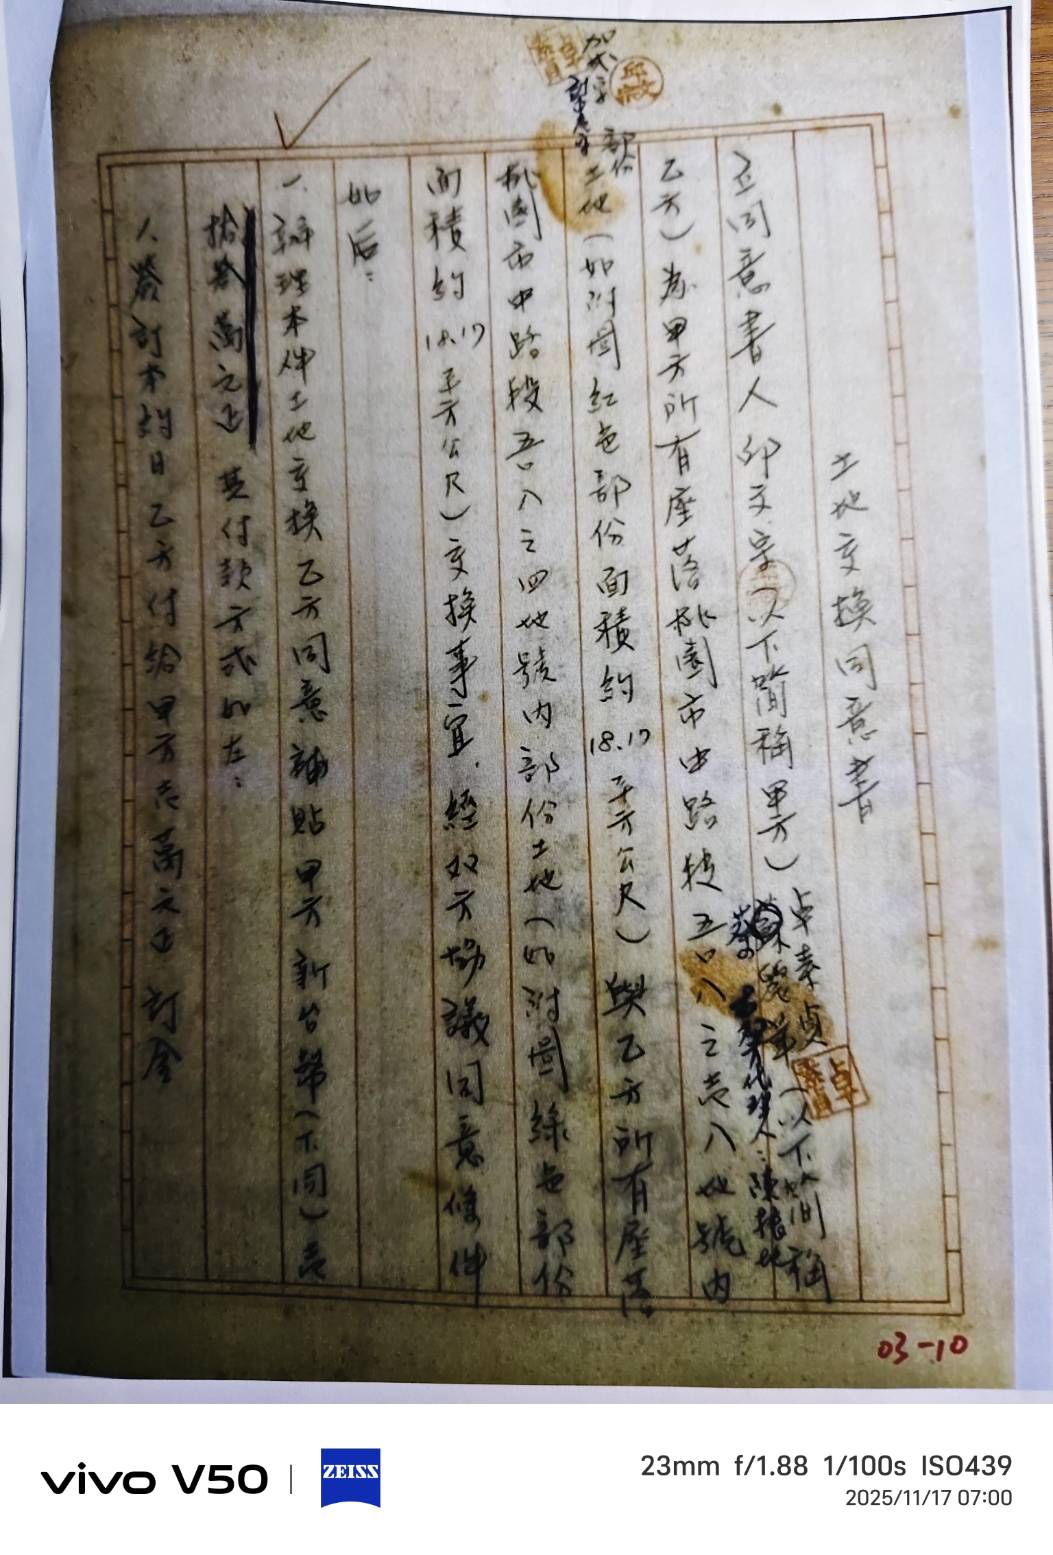 土地交換同意書
立同意書人邱文字(以下簡稱甲方)卓素貞(以下簡稱
代理人:陳振
乙方)為甲方所有座落桃園市中路段五○八之壱八地號內
部份土地(如附圖紅色部份面積約18.17平方公尺)與乙方所有座落
加弍字
桃園市中路段五○八之四地號內部份土地(如附圖綠色部份
面積約18.17平方公尺)交換事宜.經双方協議同意條件
如后:
一、辦理本件土地交換乙方同意補貼甲方新台幣(下同)壱
拾 萬元正 其付款方式如左:
簽訂本約日乙方付給甲方壱萬元正訂金
03-10
vivo V50 | ZEISS
23mm f/1.88 1/100s ISO439
2025/11/17 07:00